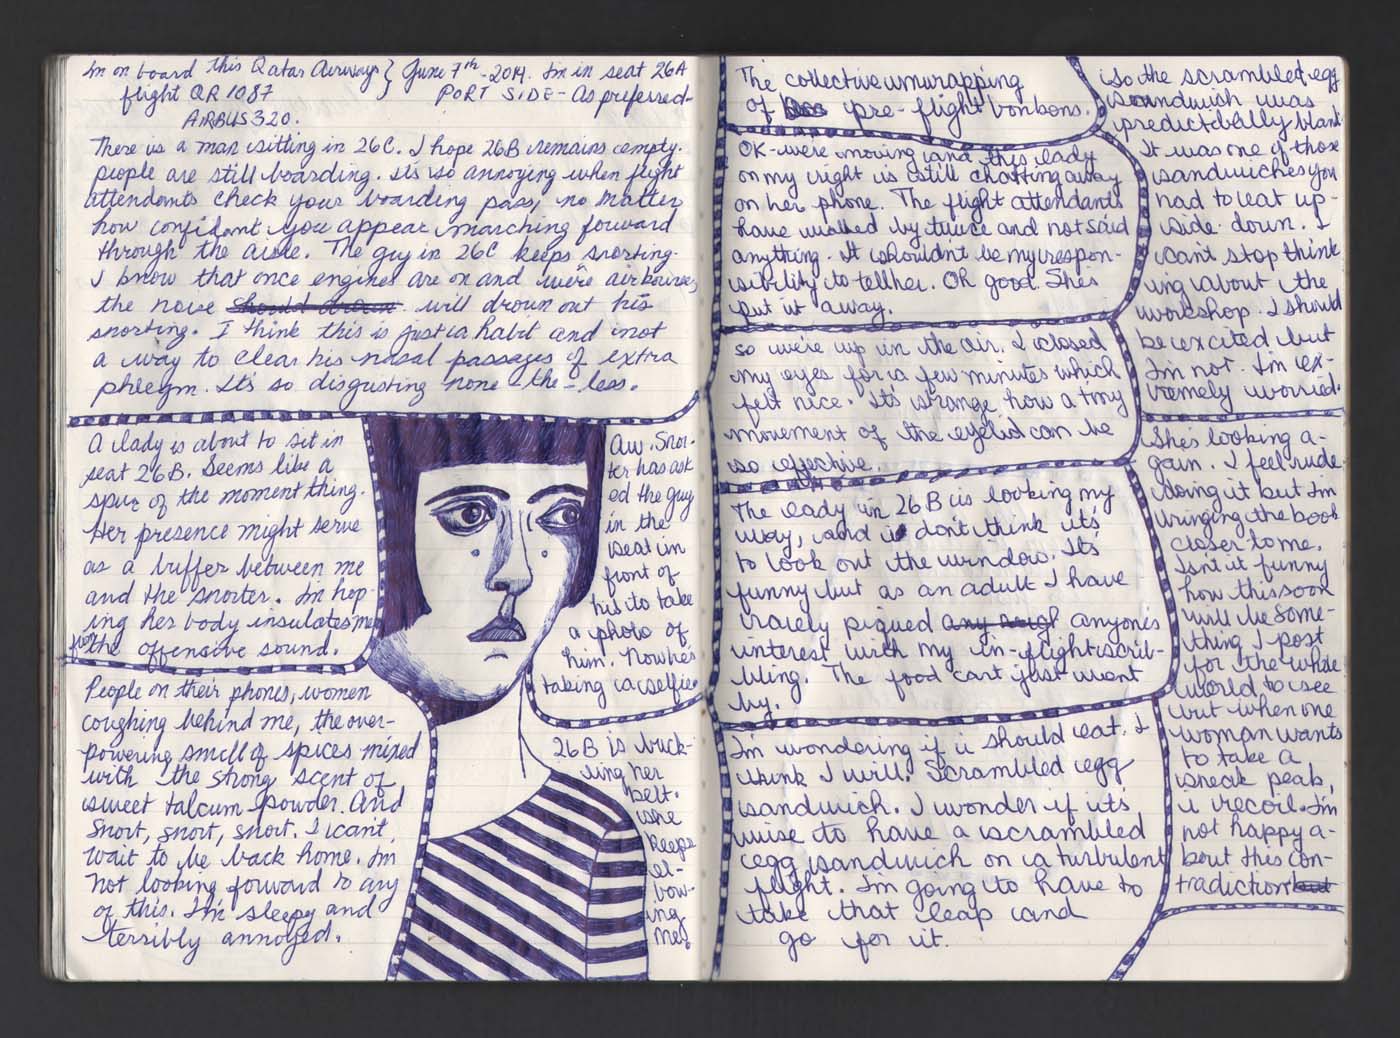 I'm on board this Qatar Airways } June 7th - 2014. I'm in seat 26A
flight QR 1087 PORT SIDE - As preferred -
AIRBUS 320.
There is a man sitting in 26C. I hope 26B remains empty.
people are still boarding. it's so annoying when flight
attendants check your boarding pass, no matter
how confident you appear marching forward
through the aisle. The guy in 26C keeps snorting.
I know that once engines are on and we're airbourne,
the noise will drown out his
snorting. I think this is just a habit and not
a way to clear his nasal passages of extra
phlegm. It's so disgusting none-the-less.
A lady is about to sit in
seat 26B. Seems like a
spur of the moment thing.
Her presence might serve
as a buffer between me
and the snorter. I'm hop-
ing her body insulates me
from the offensive sound.
People on their phones, women
coughing behind me, the over-
powering smell of spices mixed
with the strong scent of
sweet talcum powder. And
Snort, snort, snort. I can't
wait to be back home. I'm
not looking forward to any
of this. I'm sleepy and
terribly annoyed.
Aw. Snor-
ter has ask
ed the guy
in the
seat in
front of
his to take
a photo of
him. Now he's
taking a selfie.
26B is buck-
ling her
belt.
She
keeps
el-
bow-
ing
me.
The collective unwrapping
of pre-flight bonbons.
OK-we're moving and this lady
on my right is still chatting away
on her phone. The flight attendants
have walked by twice and not said
anything. It shouldn't be my respon-
sibility to tell her. Oh good. She's
put it away.
so we're up in the air. I closed
my eyes for a few minutes which
felt nice. It's strange how a tiny
movement of the eyelid can be
so effective.
The lady in 26B is looking my
way, and i don't think it's
to look out the window. It's
funny but as an adult I have
rarely piqued anyone's
interest with my in-flight scrib-
bling. The food cart just went
by.
I'm wondering if i should eat. I
think I will. Scrambled egg
sandwich. I wonder if it's
wise to have a scrambled
egg sandwich on a turbulent
flight. I'm going to have to
take that leap and
go for it.
So the scrambled egg
sandwich was
predictably bland.
It was one of those
sandwiches you
had to eat up-
side down. I
can't stop think
ing about the
workshop. I should
be excited but
I'm not. I'm ex-
tremely worried.
She's looking a-
gain. I feel rude
doing it but I'm
bringing the book
closer to me.
Isn't it funny
how this soon
will be some-
thing I post
for the whole
world to see
but when one
woman wants
to take a
sneak peak,
i recoil. I'm
not happy a-
bout this con-
tradiction